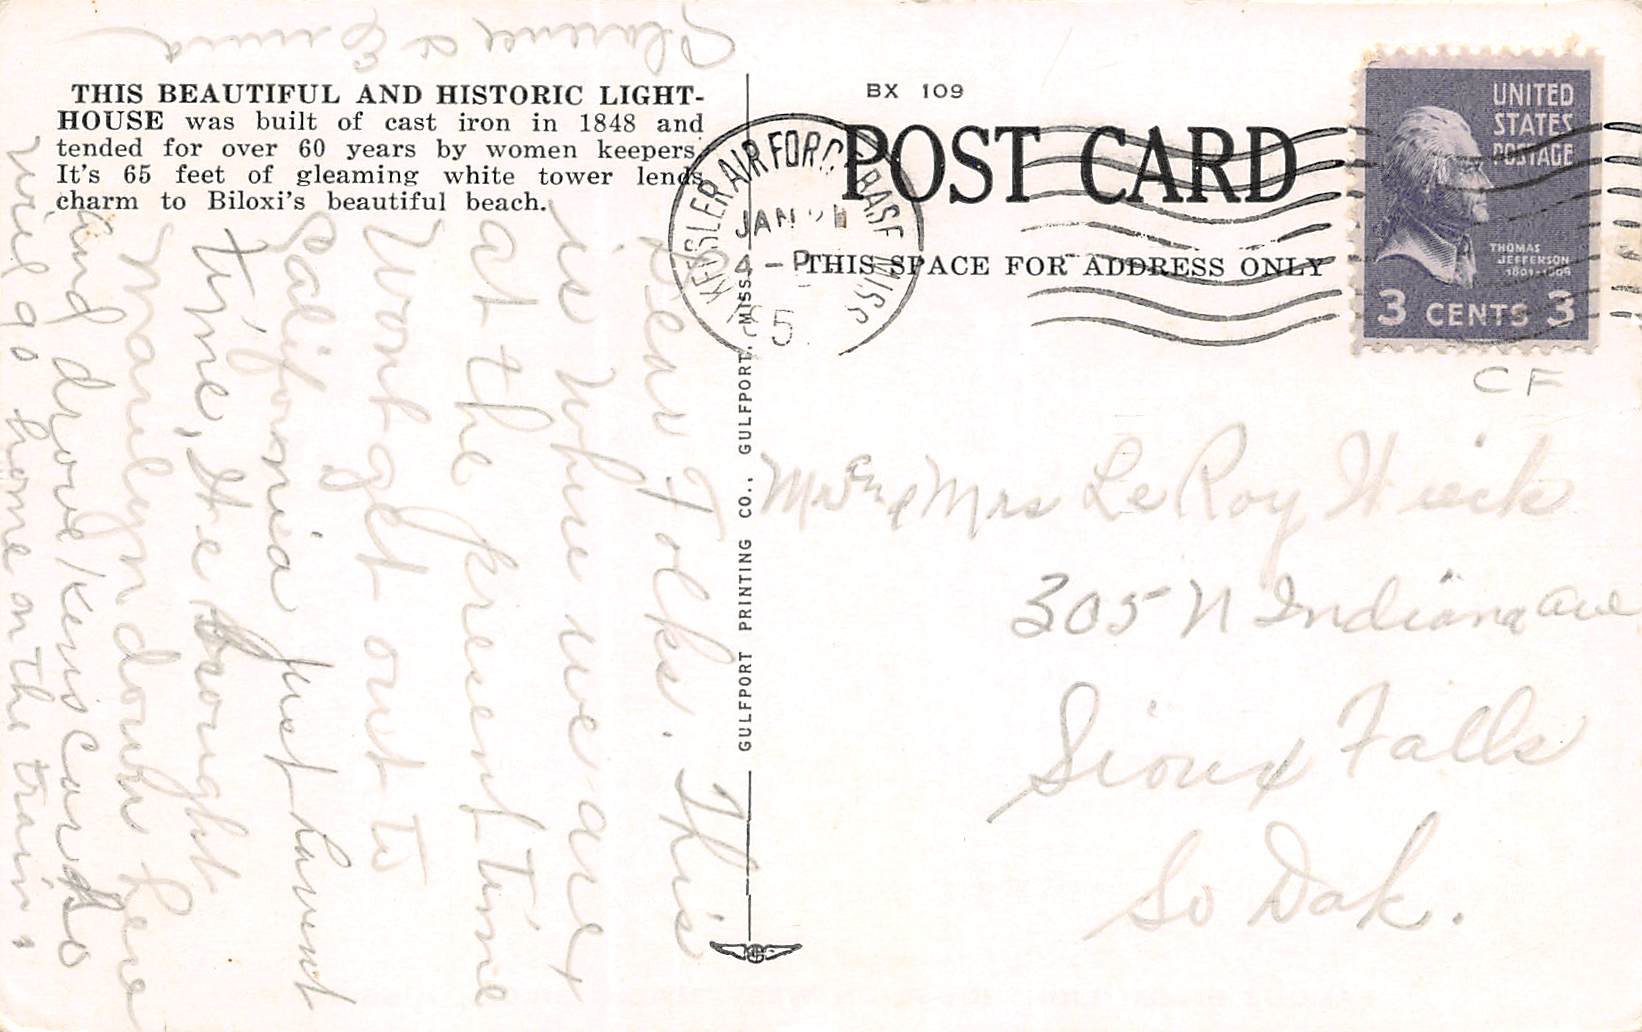 THIS BEAUTIFUL AND HISTORIC LIGHT-
HOUSE was built of cast iron in 1848 and
tended for over 60 years by women keepers.
It's 65 feet of gleaming white tower lends
charm to Biloxi's beautiful beach.
BX 109
POST CARD
THIS SPACE FOR ADDRESS ONLY
UNITED
STATES
POSTAGE
THOMAS
JEFFERSON
1801-1809
3 CENTS 3
KEESLER AIR FORCE BASE MISS
JAN
4 - P
GULFPORT PRINTING CO., GULFPORT, MISS.
CF
Mr and Mrs LeRoy
305 N Indiana Ave
Sioux Falls
So Dak.
Dear Folks. This
is where we are
at the present time
Wont get out to
California just havent
time, He brought
Marilyn down here
and drove Kens car so
will go home on the train.
Clarence & Emma